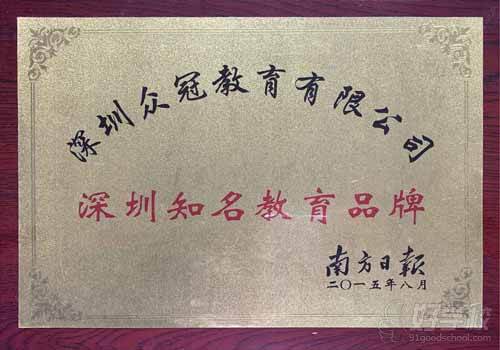 深圳众冠教育有限公司
深圳知名教育品牌
南方日报
二〇一五年八月
好学校
91goodschool.com